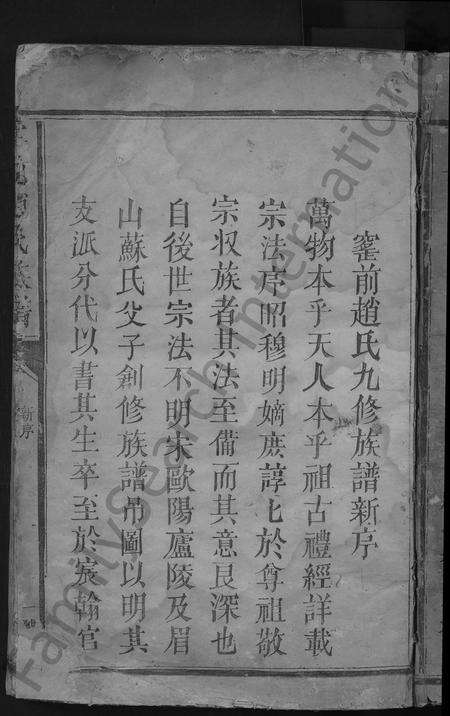 窰前趙氏九修族譜新序
萬物本乎天人本乎祖古禮經詳載
宗法序昭穆明嫡庶諄乚於尊祖敬
宗収族者其法至備而其意良深也
自後世宗法不明宋歐陽廬陵及眉
山蘇氏父子創修族譜吊圖以明其
支派分代以書其生卒至於宸翰官
氏族譜
新序
一
FamilySearch International